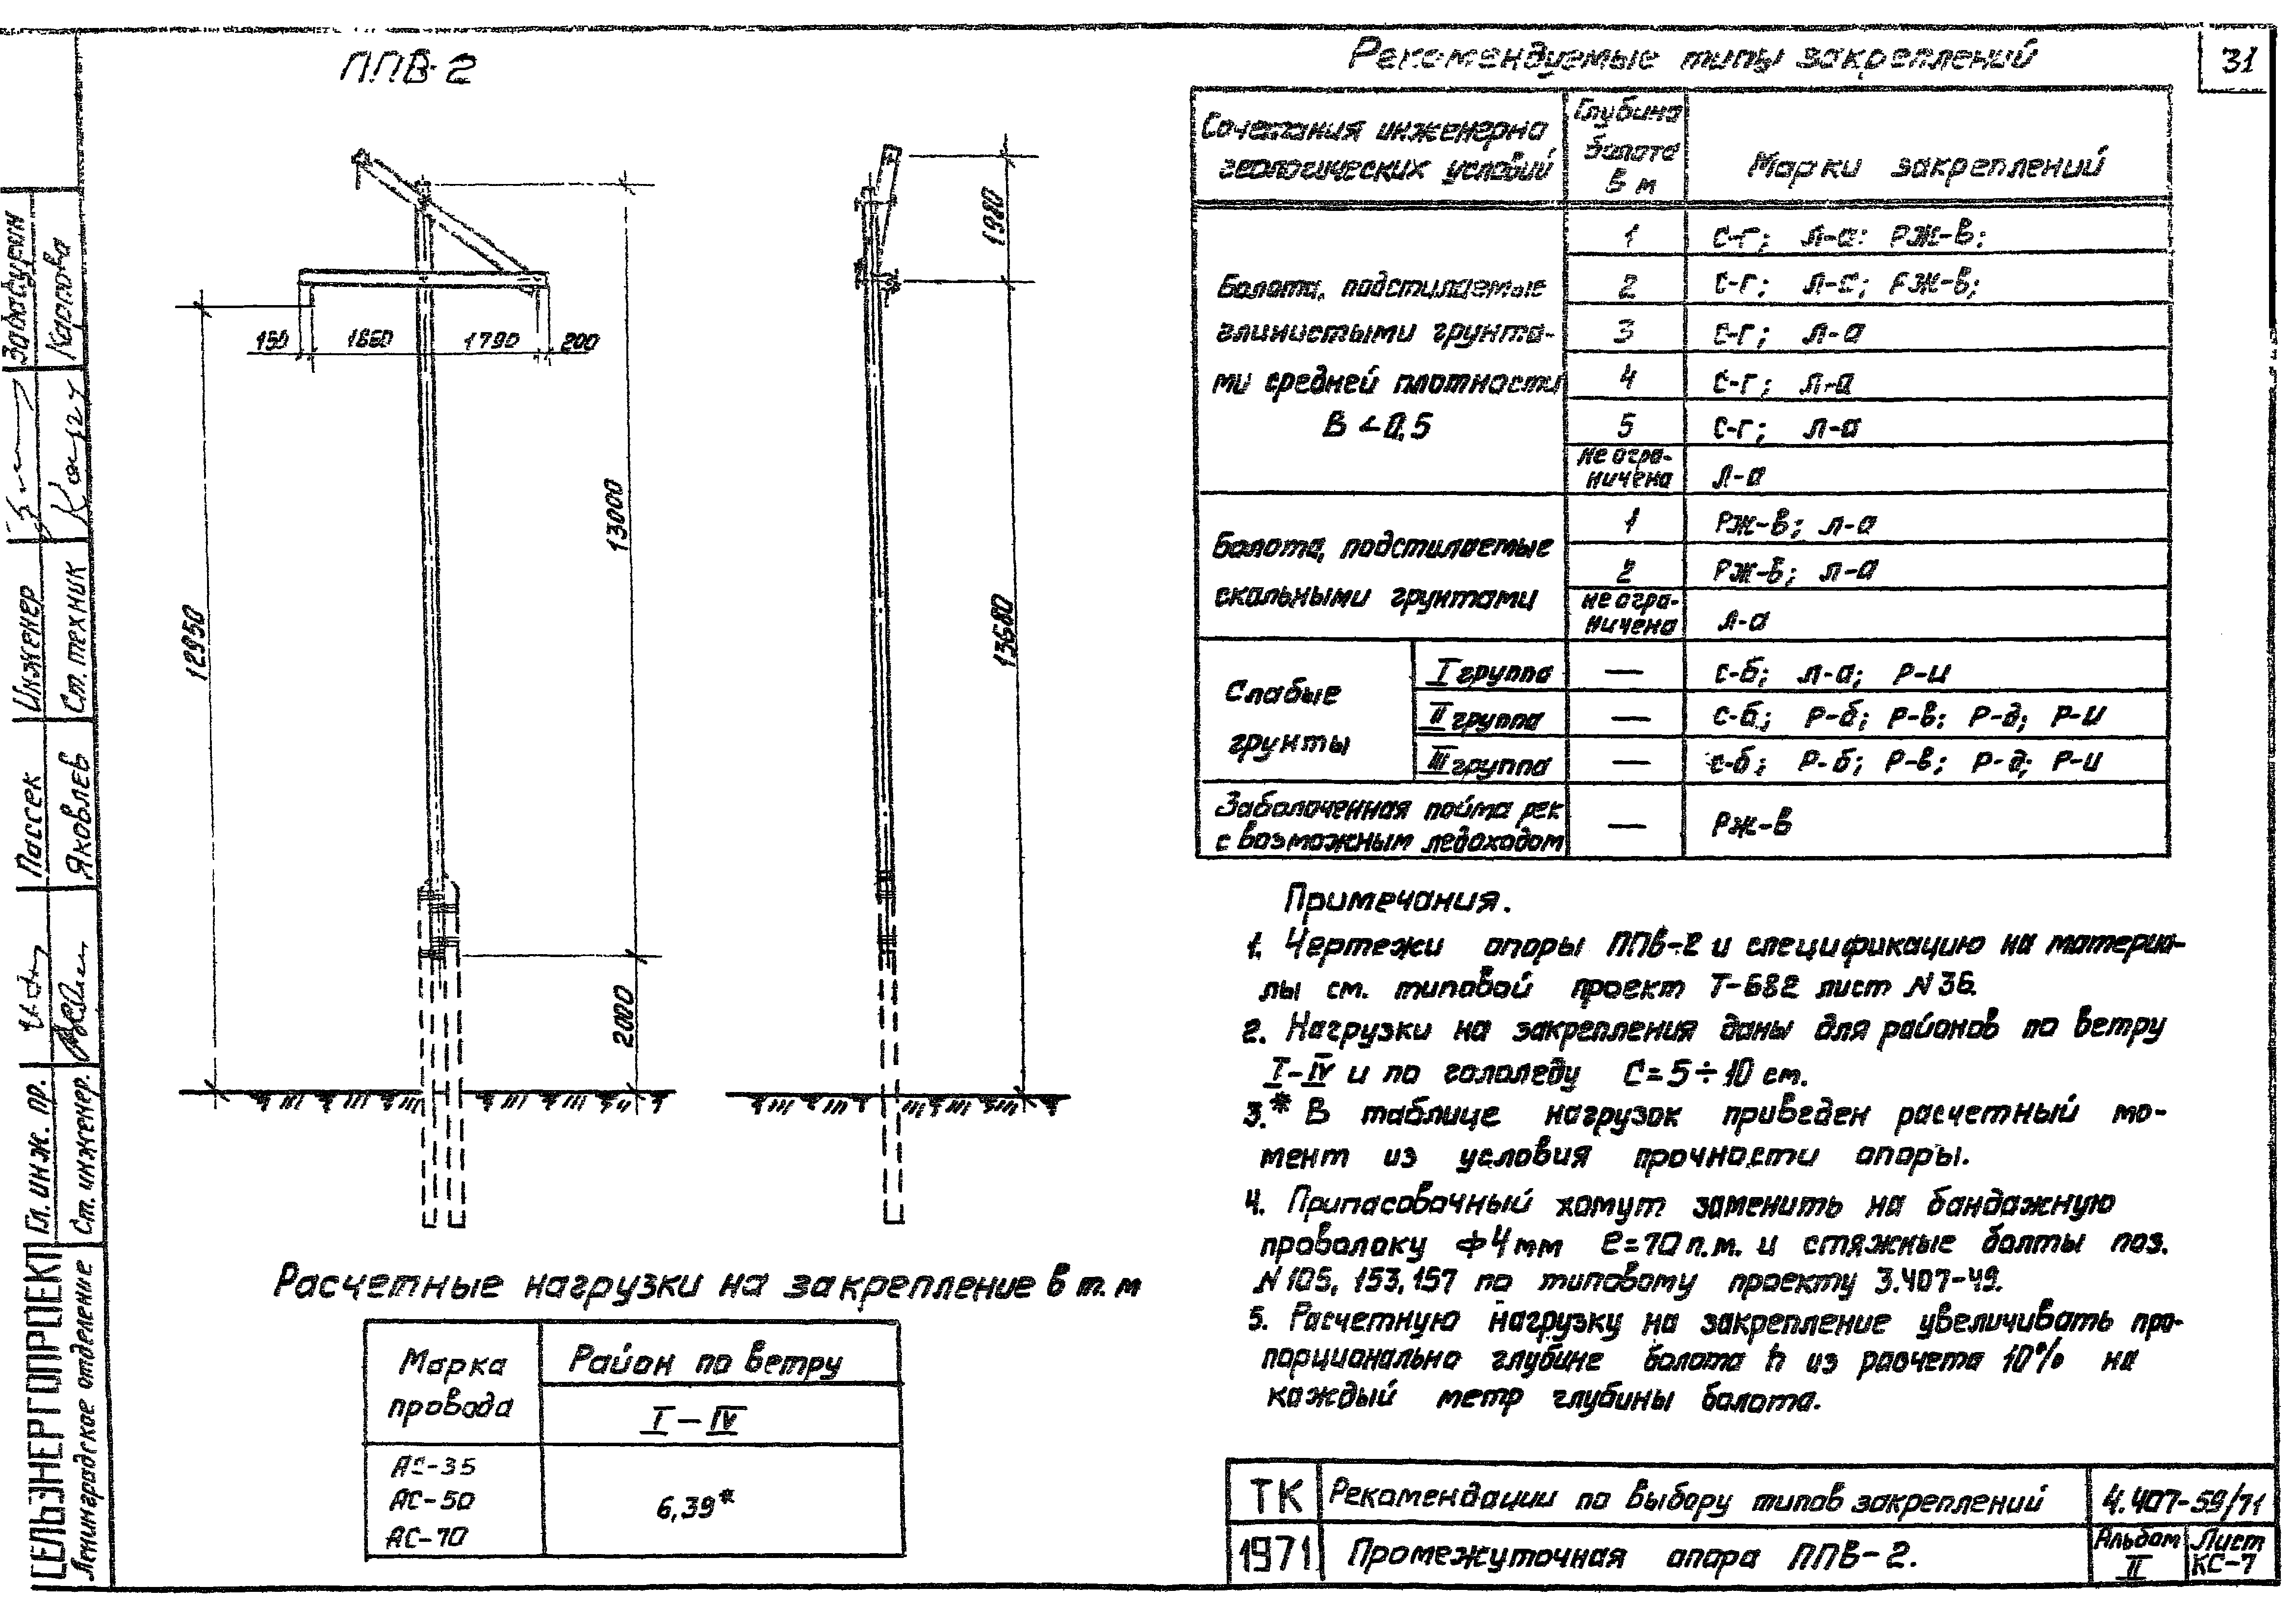 31
ППВ-2
1980
150 1660 1790 200
13000
12950
13680
2000
Расчетные нагрузки на закрепление в т.м
Марка провода
Район по ветру
I-IV
АС-35
АС-50
АС-70
6,39*
Рекомендуемые типы закреплений
Сочетания инженерно геологических условий
Глубина болота в м
Марки закреплений
Болота, подстилаемые
глинистыми грунта-
ми средней плотности
В < 0,5
1 С-Г; Л-а; РЖ-в;
2 С-Г; РЖ-в;
3 С-Г; Л-а
4 С-Г; Л-а
5 С-Г; Л-а
не огра-
ничена Л-а
Болота, подстилаемые
скальными грунтами
1 РЖ-в; Л-а
2 РЖ-в; Л-а
не огра-
ничена Л-а
Слабые
грунты
I группа — С-б; Л-а; Р-и
II группа — С-б; Р-б; Р-в; Р-д; Р-и
III группа — С-б; Р-б; Р-в; Р-д; Р-и
Заболоченная пойма рек
с возможным ледоходом — РЖ-в
Примечания.
1. Чертежи опоры ППВ-2 и спецификацию на материа-
лы см. типовой проект Т-682 лист N 36.
2. Нагрузки на закрепления даны для районов по ветру
I-IV и по гололеду С=5÷10 см.
3.* В таблице нагрузок приведен расчетный мо-
мент из условия прочности опоры.
4. Припасовочный хомут заменить на бандажную
проволоку ф4мм ℓ=70п.м. и стяжные болты поз.
N 105, 153, 157 по типовому проекту 3.407-49.
5. Расчетную нагрузку на закрепление увеличивать про-
порционально глубине болота h из расчета 10% на
каждый метр глубины болота.
ТК
Рекомендации по выбору типов закреплений
4.407-59/71
1971
Промежуточная опора ППВ-2.
Альбом II
Лист КС-7
СЕЛЬЭНЕРГОПРОЕКТ
Ленинградское отделение
Гл. инж. пр. Пассек
Ст. инженер. Яковлев
Инженер
Ст. техник Карпова